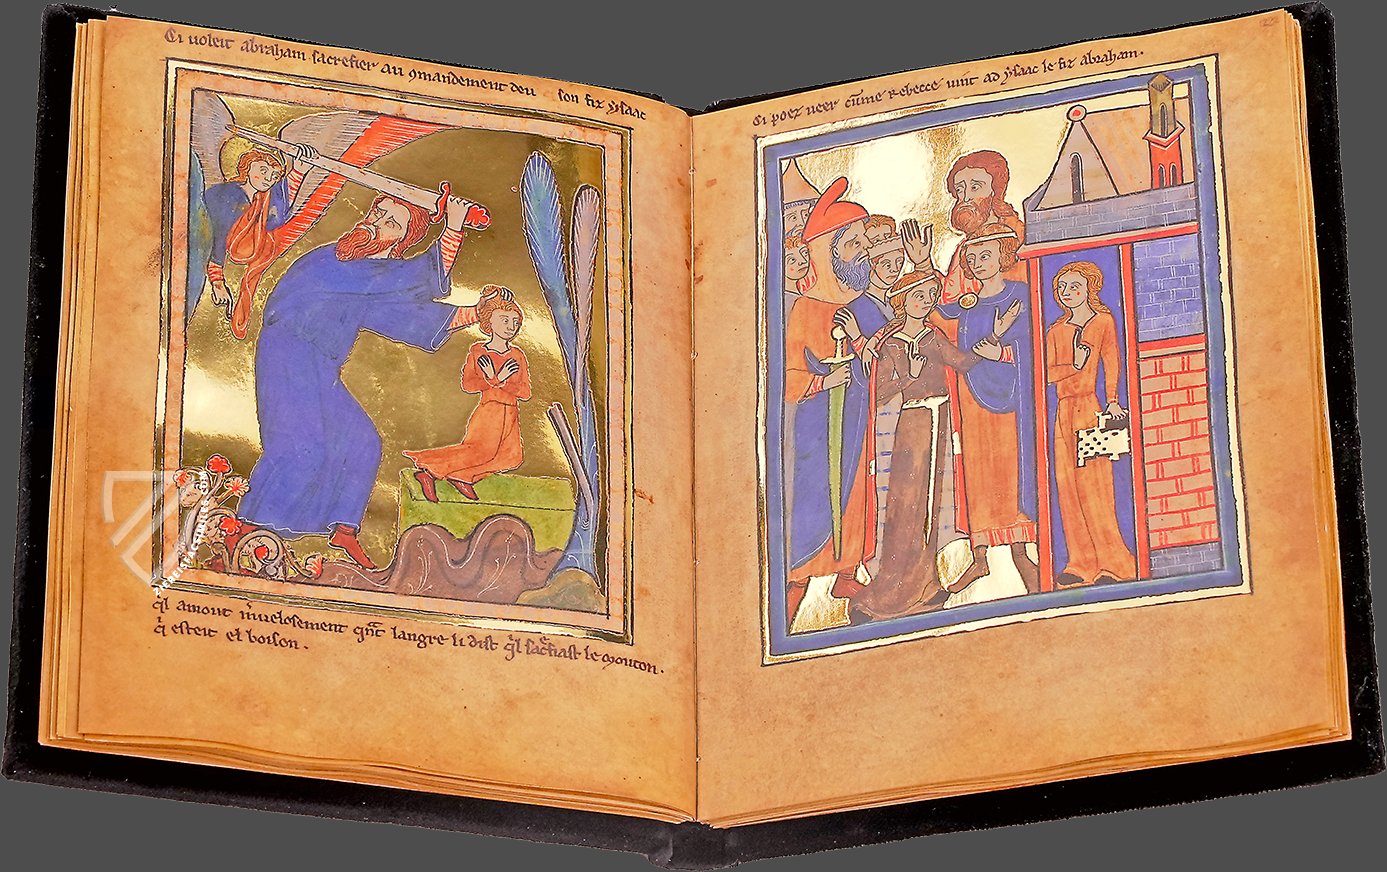 Ci voleit abraham sacrefier au 9mandement deu son fiz ysaac
q̃l amout m̃velosement qñt langre li dist q̃l sac̃fiast le mouton.
q̃ esteit el boison.
Ci poez veer cũme Rebecce vint ad ysaac le fiz abraham.